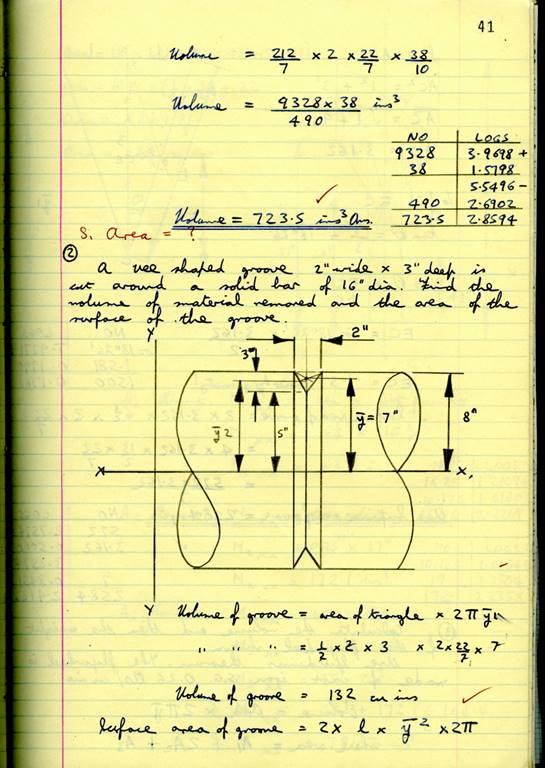 41
Volume = 212/7 × 2 × 22/7 × 38/10
Volume = 9328 × 38 / 490 ins³
NO LOGS
9328 3.9698 +
38 1.5798
5.5496 −
490 2.6902
723.5 2.8594
Volume = 723.5 ins³ Ans.
S. Area = ?
②
A vee shaped groove 2" wide × 3" deep is
cut around a solid bar of 16" dia. Find the
volume of material removed and the area of the
surface of the groove.
Y
2"
3"
ȳ2
5"
ȳ = 7"
8"
X
X,
Y
Volume of groove = area of triangle × 2π ȳ1
" " " = 1/2 × 2 × 3 × 2 × 22/7 × 7
Volume of groove = 132 cu ins
Surface area of groove = 2 × l × ȳ² × 2π